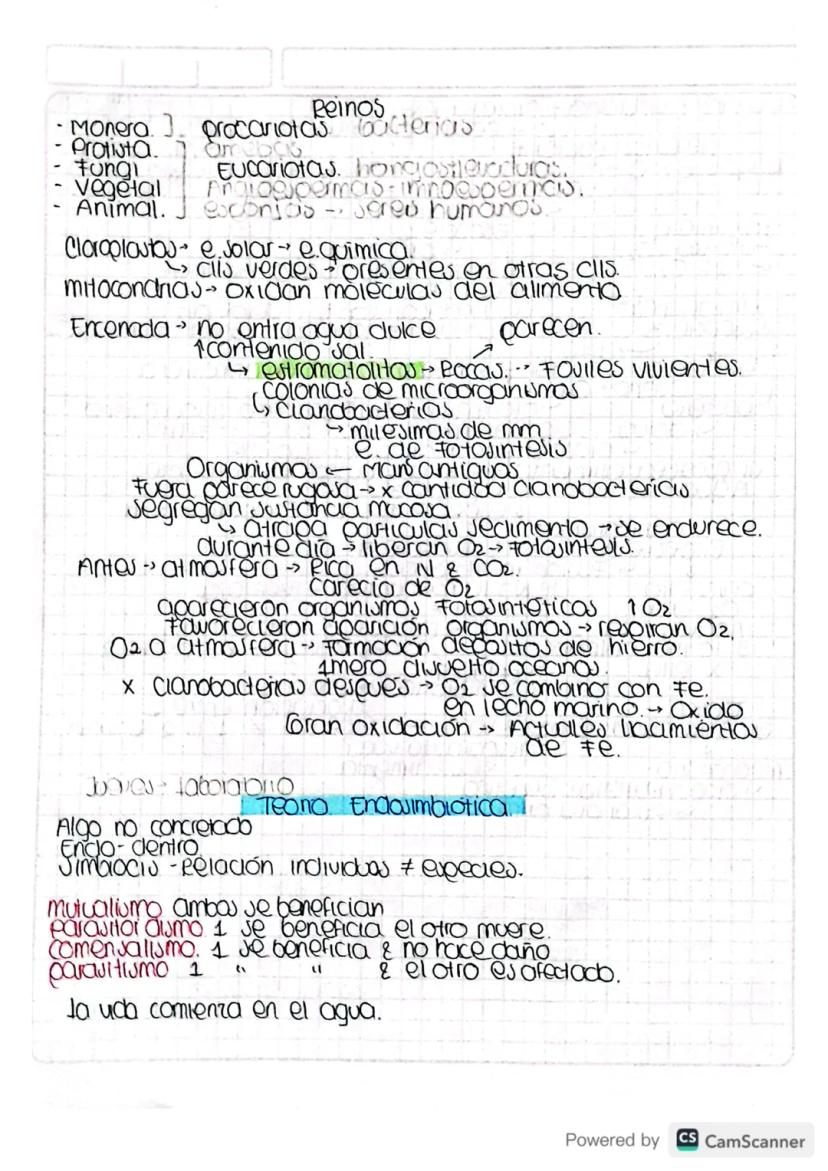 Reinos
- Monera. ]. procariotas bacterias
- Protista. ] amebas
- Fungi Eucariotas. hongos levaduras.
- Vegetal Angioespermas - imnoespermas.
- Animal. ] esponjas - seres humanos
Cloroplastos → e. solar → e. química.
↳ clls verdes → presentes en otras clls.
mitocondrias → oxidan moléculas del alimento
Encenada → no entra agua dulce parecen.
↑ contenido sal.
↳ estromatolitos → Rocas. -- Fósiles vivientes.
colonias de microorganismos
↳ cianobacterias
→ milesimas de mm
e. de fotosíntesis
Organismos ← Mars antiguos
Fuera parece rugosa → x cantidad cianobacterias
segregan sustancia mucosa.
↳ atrapa particulas sedimento → se endurece.
durante día → liberan O2 → fotosíntesis.
Antes → atmosfera → Rica en N & CO2.
carecia de O2
aparecieron organismos fotosintéticos ↑ O2
Favorecieron aparición organismos → respiran O2,
O2 a atmosfera → Formación depositos de hierro.
1mero disuelto oceanos.
x cianobacterias después → O2 se combino con Fe.
en lecho marino. → Oxido
Gran oxidación → Actuales yacimientos
de Fe.
Jueves - laboratorio
Teoria Endosimbiotica.
Algo no concretado
Endo - dentro
Simbiocis - Relación individuos ≠ especies.
mutualismo ambos se benefician
parasitoidismo 1 se beneficia el otro muere.
comensalismo. 1 se beneficia & no hace daño
parasitismo 1 " " & el otro es afectado.
la vida comienza en el agua.
Powered by CS CamScanner